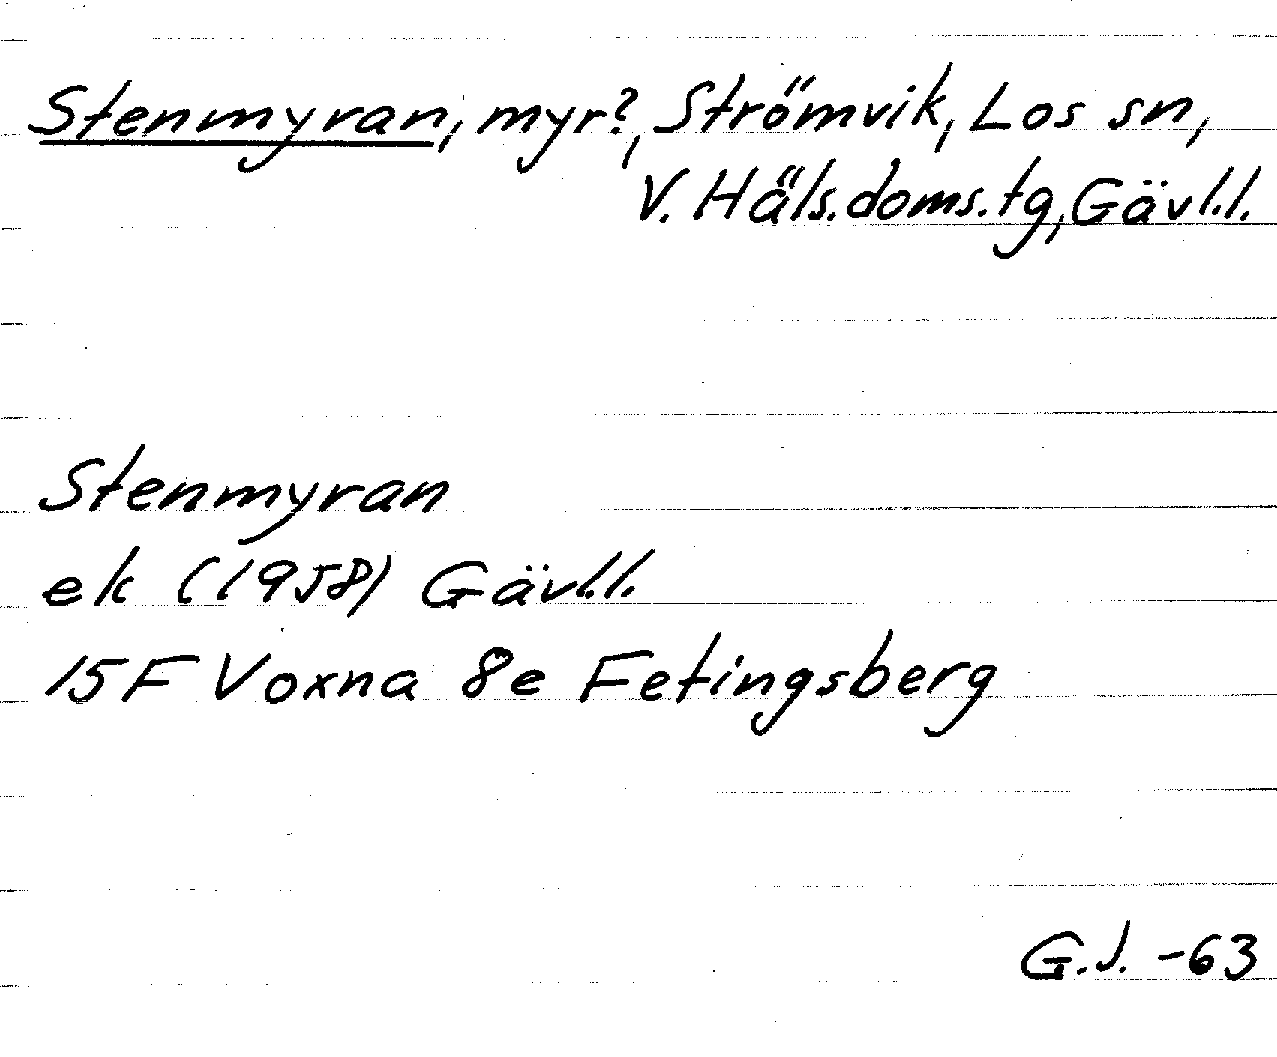 Stenmyran, myr?, Strömvik, Los sn,
V. Häls. doms. tg, Gävl.l.
Stenmyran
ek (1958) Gävl.l.
15F Voxna 8e Fetingsberg
G.J. -63